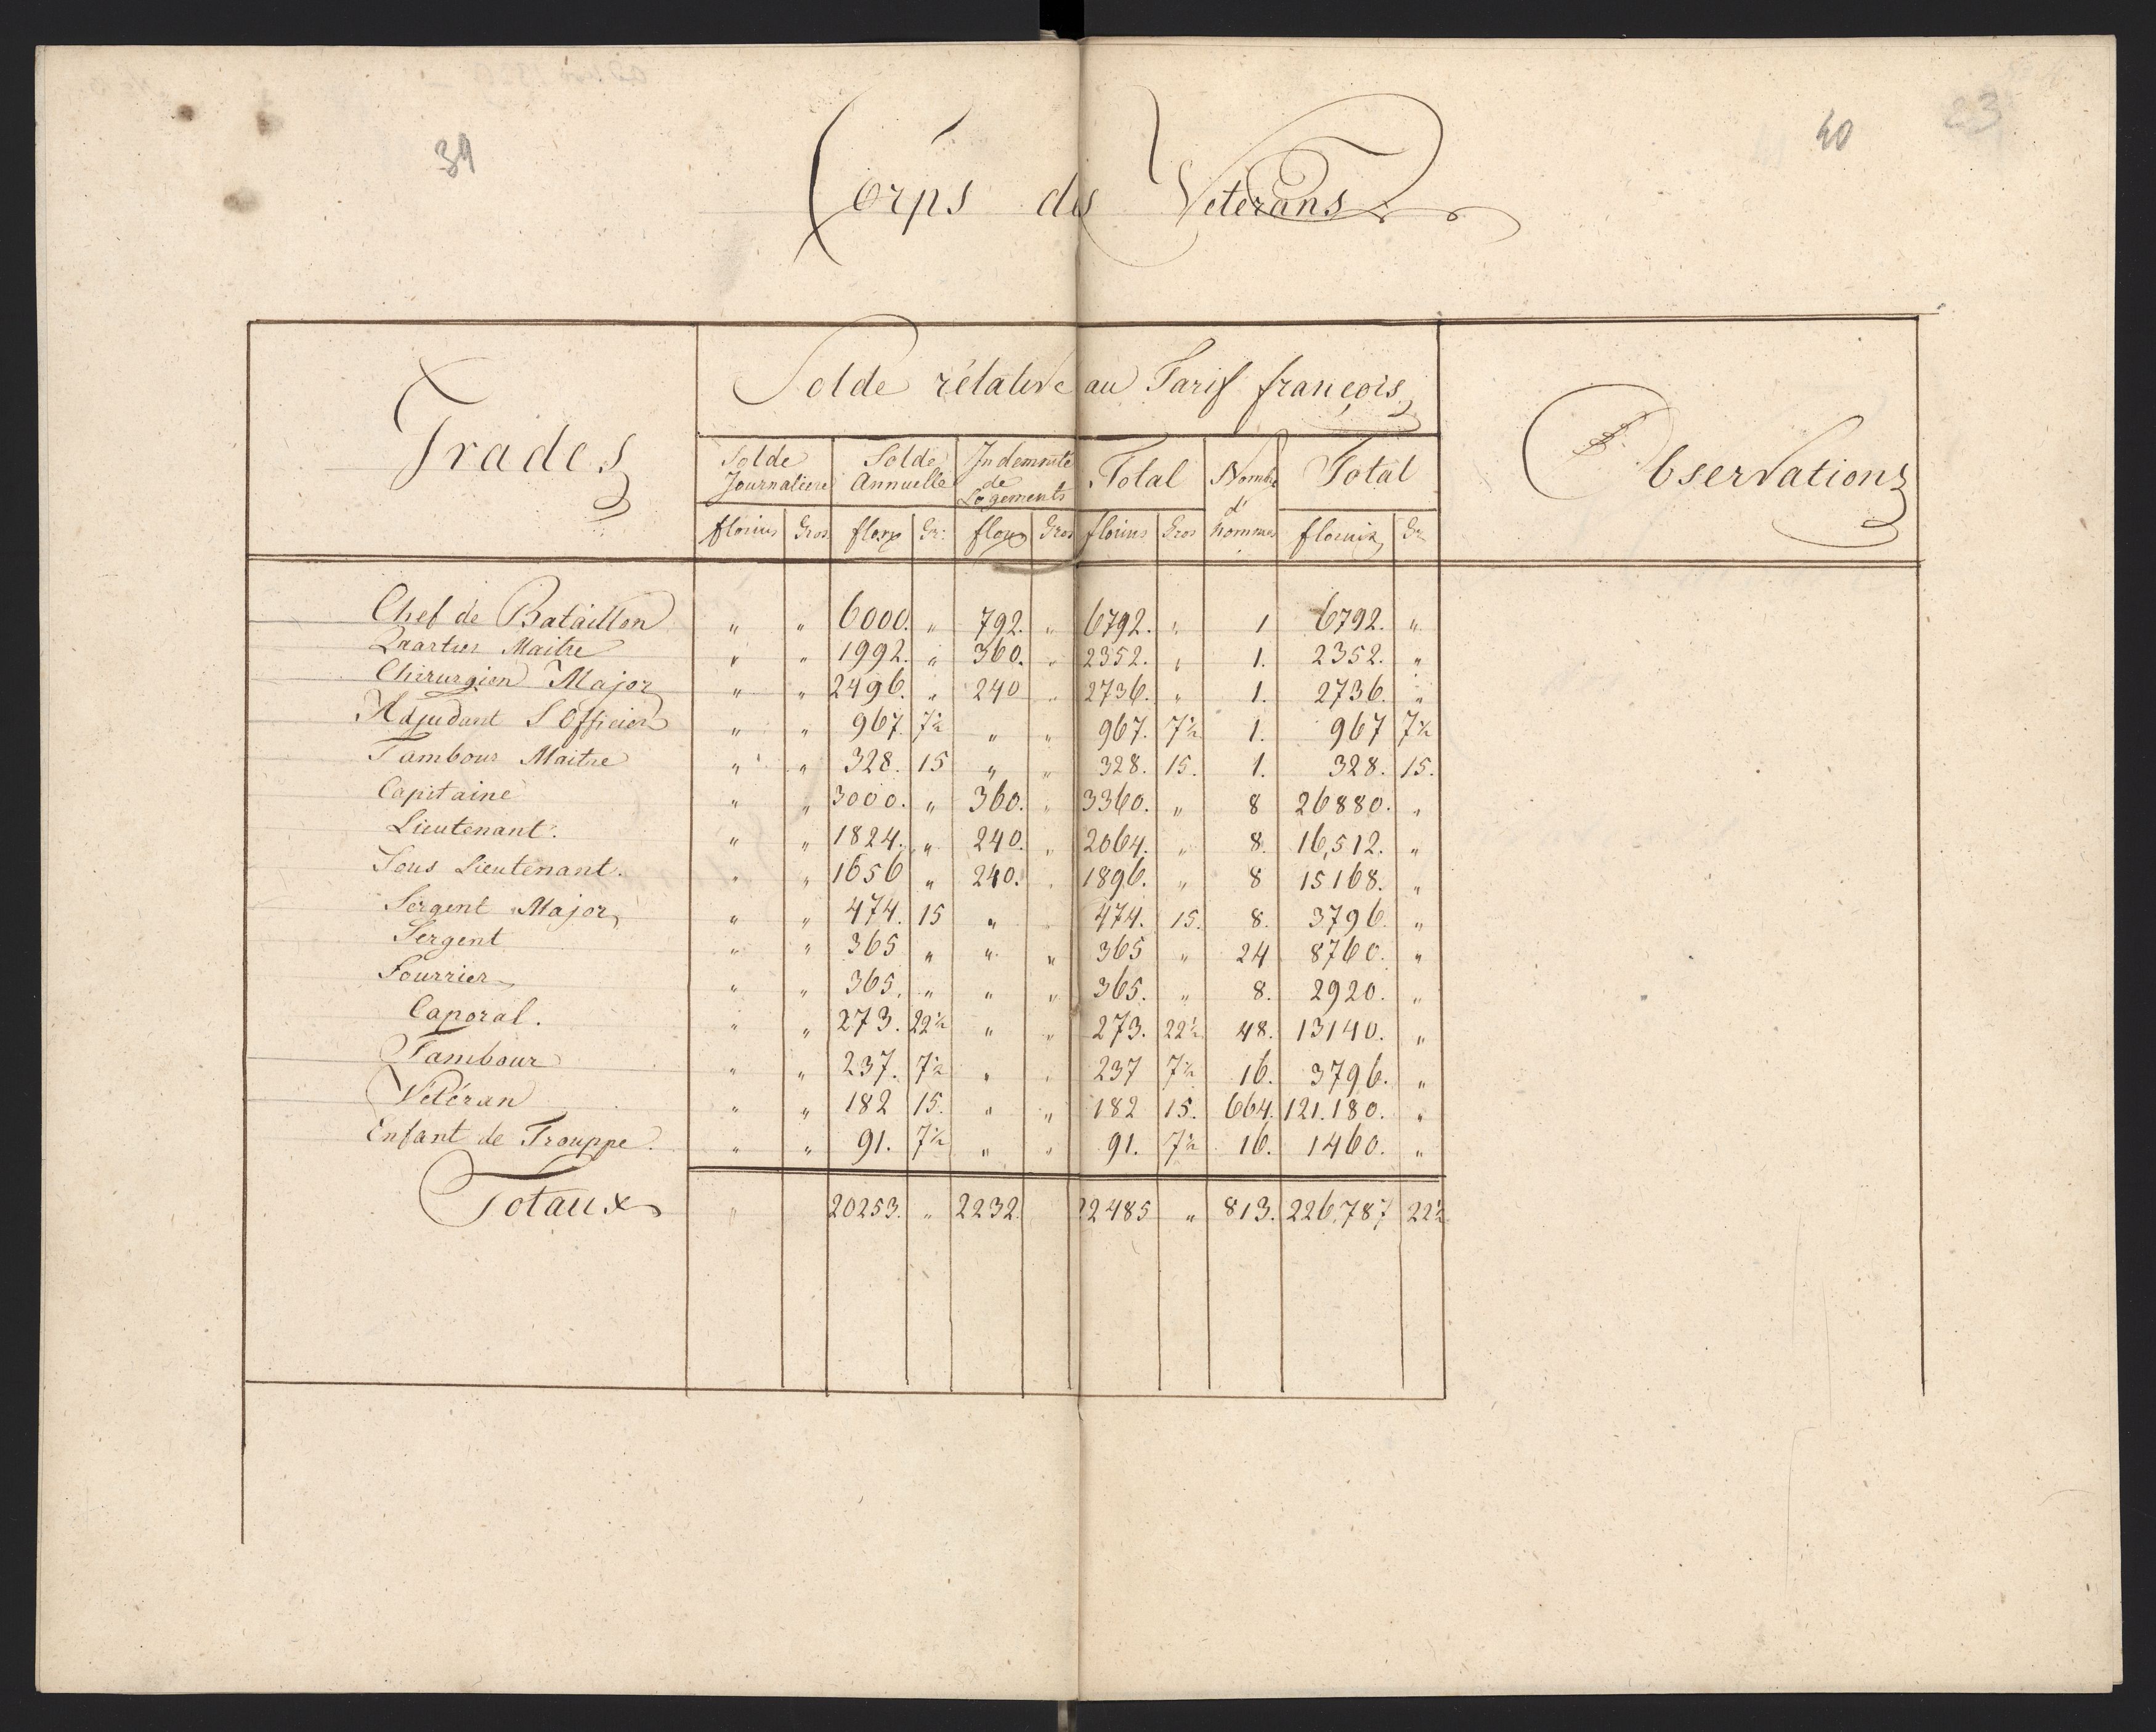 39
40
23
Corps des Vétérans
Grades
Solde rélative au Tarif françois
Observations
Solde Journaliere
Solde Annuelle
Indemnite de Logements
Total
Nombre d' hommes
Total
florins Gros florns Gr: florns Gros florins Gros florins Gr
Chef de Bataillon " " 6000. " 792. " 6792. " 1 6792. "
Quartier Maitre " " 1992. " 360. " 2352. " 1. 2352. "
Chirurgien Major " " 2496. " 240 " 2736. " 1. 2736. "
Adjudant S Officier " " 967. 7½ " " 967. 7½ 1. 967 7½
Tambour Maitre " " 328. 15 " " 328. 15. 1. 328. 15.
Capitaine " " 3000. " 360. " 3360. " 8 26880. "
Lieutenant. " " 1824. " 240. " 2064. " 8. 16,512. "
Sous Lieutenant. " " 1656 " 240. " 1896. " 8 15168. "
Sergent Major " " 474. 15 " " 474. 15. 8. 3796. "
Sergent " " 365 " " " 365 " 24 8760. "
Fourrier " " 365. " " " 365. " 8. 2920. "
Caporal. " " 273. 22½ " " 273. 22½ 48. 13140. "
Tambour " " 237. 7½ " " 237 7½ 16. 3796. "
Vétéran " " 182 15. " " 182 15. 664. 121.180. "
Enfant de Trouppe. " " 91. 7½ " " 91. 7½ 16. 1460. "
Totaux " 20253. " 2232. 22485 " 813. 226,787 22½